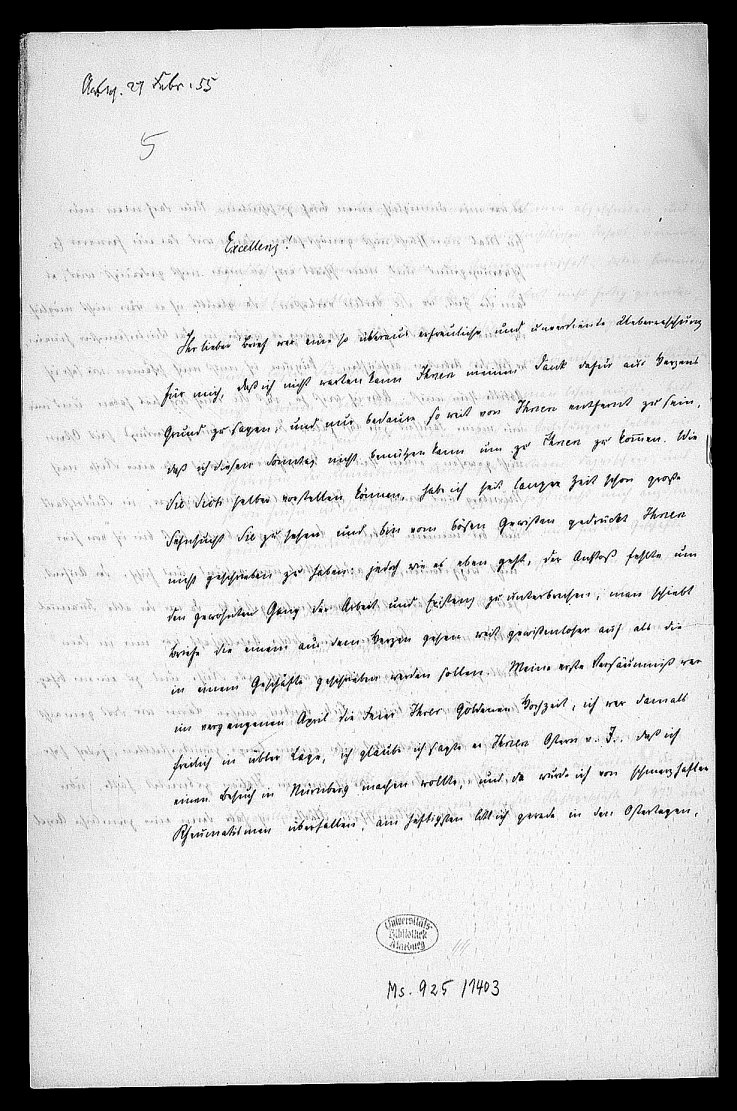 27 Febr. 55
5
Excellenz!
Ihr lieber Brief war eine so überaus erfreuliche und unverdiente Ueberraschung
für mich, daß ich nicht warten kann Ihnen meinen Dank dafür aus Herzens
Grund zu sagen, und nur bedaure so weit von Ihnen entfernt zu sein,
daß ich diesen Sonntag nicht benutzen kann um zu Ihnen zu kommen. Wie
Sie sich selber vorstellen können, habe ich seit langer Zeit schon große
Sehnsucht Sie zu sehen und bin vom bösen Gewissen gedrückt Ihnen
nicht geschrieben zu haben; jedoch wie es eben geht, der Anstoß fehlte um
den gewohnten Gang der Arbeit und Existenz zu unterbrechen; man schiebt
Briefe die einem aus dem Herzen gehen weit gewissenloser auf als die
in einem Geschäfte geschrieben werden sollen. Meine erste Versäumniß war
im vergangenen April die Feier Ihrer Goldenen Hochzeit, ich war damals
freilich in übler Lage, ich glaube ich sagte es Ihnen Ostern v. J. daß ich
einen Besuch in Nürnberg machen wollte, und da wurde ich von schmerzhaften
Rheumatismen überfallen, am heftigsten litt ich gerade in den Ostertagen,
Universitäts-
Bibliothek
Marburg
Ms. 925/1403